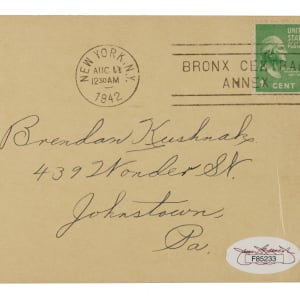 NEW YORK, N.Y.
AUG 11
1230 AM
1942
BRONX CENTRAL
ANNEX
UNITED
STATES
1 CENT
Brendan Kushnak
439 Wonder St.
Johnstown,
Pa.
F85233